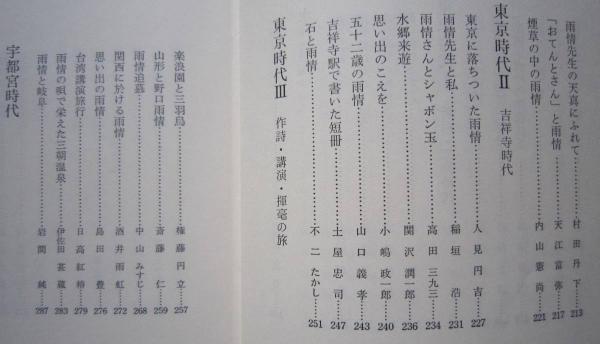 雨情先生の天真にふれて……村田丹下 213
「おてんとさん」と雨情……天江富弥 217
煙草の中の雨情……内山憲尚 221
東京時代Ⅱ 吉祥寺時代
東京に落ちついた雨情……人見円吉 227
雨情先生と私……稲垣浩 231
雨情さんとシャボン玉……高田三九三 234
水郷来遊……関沢潤一郎 236
思い出のこえを……小嶋政一郎 240
五十二歳の雨情……山口義孝 243
吉祥寺駅で書いた短冊……土屋忠司 247
石と雨情……不二たかし 251
東京時代Ⅲ 作詩・講演・揮毫の旅
楽浪園と三羽烏……権藤円立 257
山形と野口雨情……斎藤仁 259
雨情追慕……中山みすじ 268
関西に於ける雨情……酒井雨虹 272
思い出の雨情……島田豊 276
台湾講演旅行……日高紅椿 279
雨情の唄で栄えた三朝温泉……伊佐田甚蔵 283
雨情と岐阜……岩間純 287
宇都宮時代